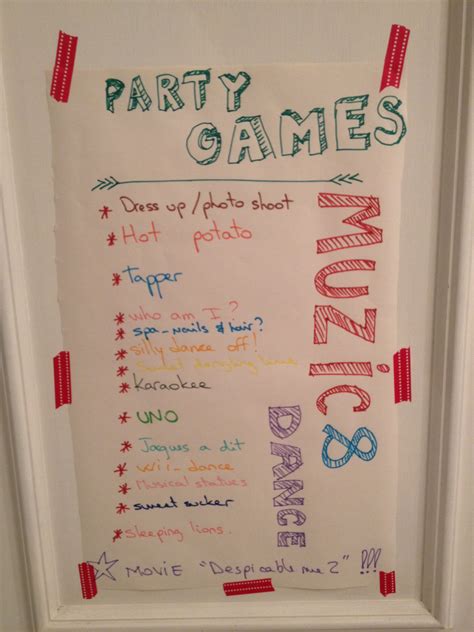 PARTY
GAMES
* Dress up / photo shoot
* Hot potato
* tapper
* who am I?
* spa-nails & hair?
* silly dance off!
* Sweet dangling
* Karaokee
* UNO
* Jaques a dit
* wii-dance
* Musical statues
* sweet sucker
* sleeping lions.
MOVIE "Despicable me 2" !!!
MUZIC &
DANCE